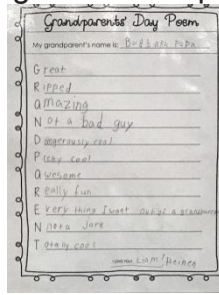 Grandparents' Day Poem
My grandparent's name is: Papa
Great
Ripped
amazing
Not a bad guy
Dangerously cool
Ptchy cool
awesome
Really fun
Every thing I want out of a grandparent
Not a Jerk
Totally cool
Liam